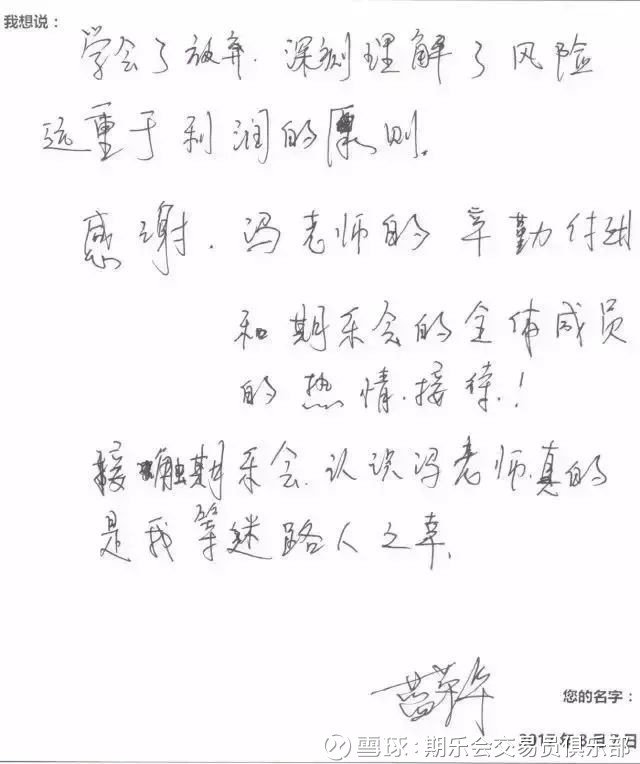 我想说：
学会了放弃.深刻理解了风险
远重于利润的原则.
感谢.冯老师的辛勤付出
和期乐会的全体成员
的热情.接待.!
接触期乐会.认识冯老师.真的
是我等迷路人之幸.
您的名字：
雪球：期乐会交易员俱乐部